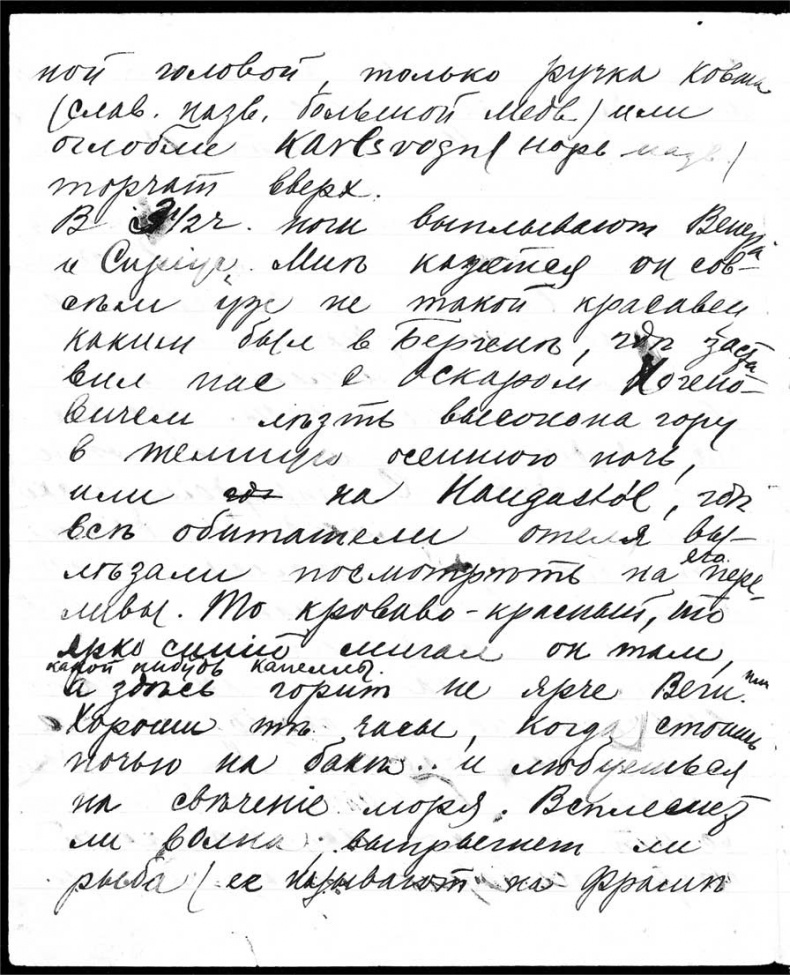 ной головой, только ручка ковша
(слав. назв. большой медв) или
оглобле Karlsvogn (норв назв)
торчат вверх.
В 9 1/2 ч. ночи выплывают Венера
и Сиріус. Мнѣ кажется он сов-
сѣм уж не такой красавец
каким был в Бергенѣ, гдѣ заста
вил нас с Оскаром
вичем лѣзть высоко на гору
в темную осеннюю ночь,
или на Haugastöl, гдѣ
всѣ обитатели отеля вы-
лѣзали посмотрѣть на его пере-
ливы. То кроваво-красный, то
ярко синій мигал он там,
а здѣсь горит не ярче Веги или
какой нибудь капеллы.
Хороши тѣ часы, когда стоишь
ночью на бакѣ.. и любуешься
на свѣченіе моря. Всплеснет
ли волна, выпрыгнет ли
рыба (ее называют на Фрамѣ